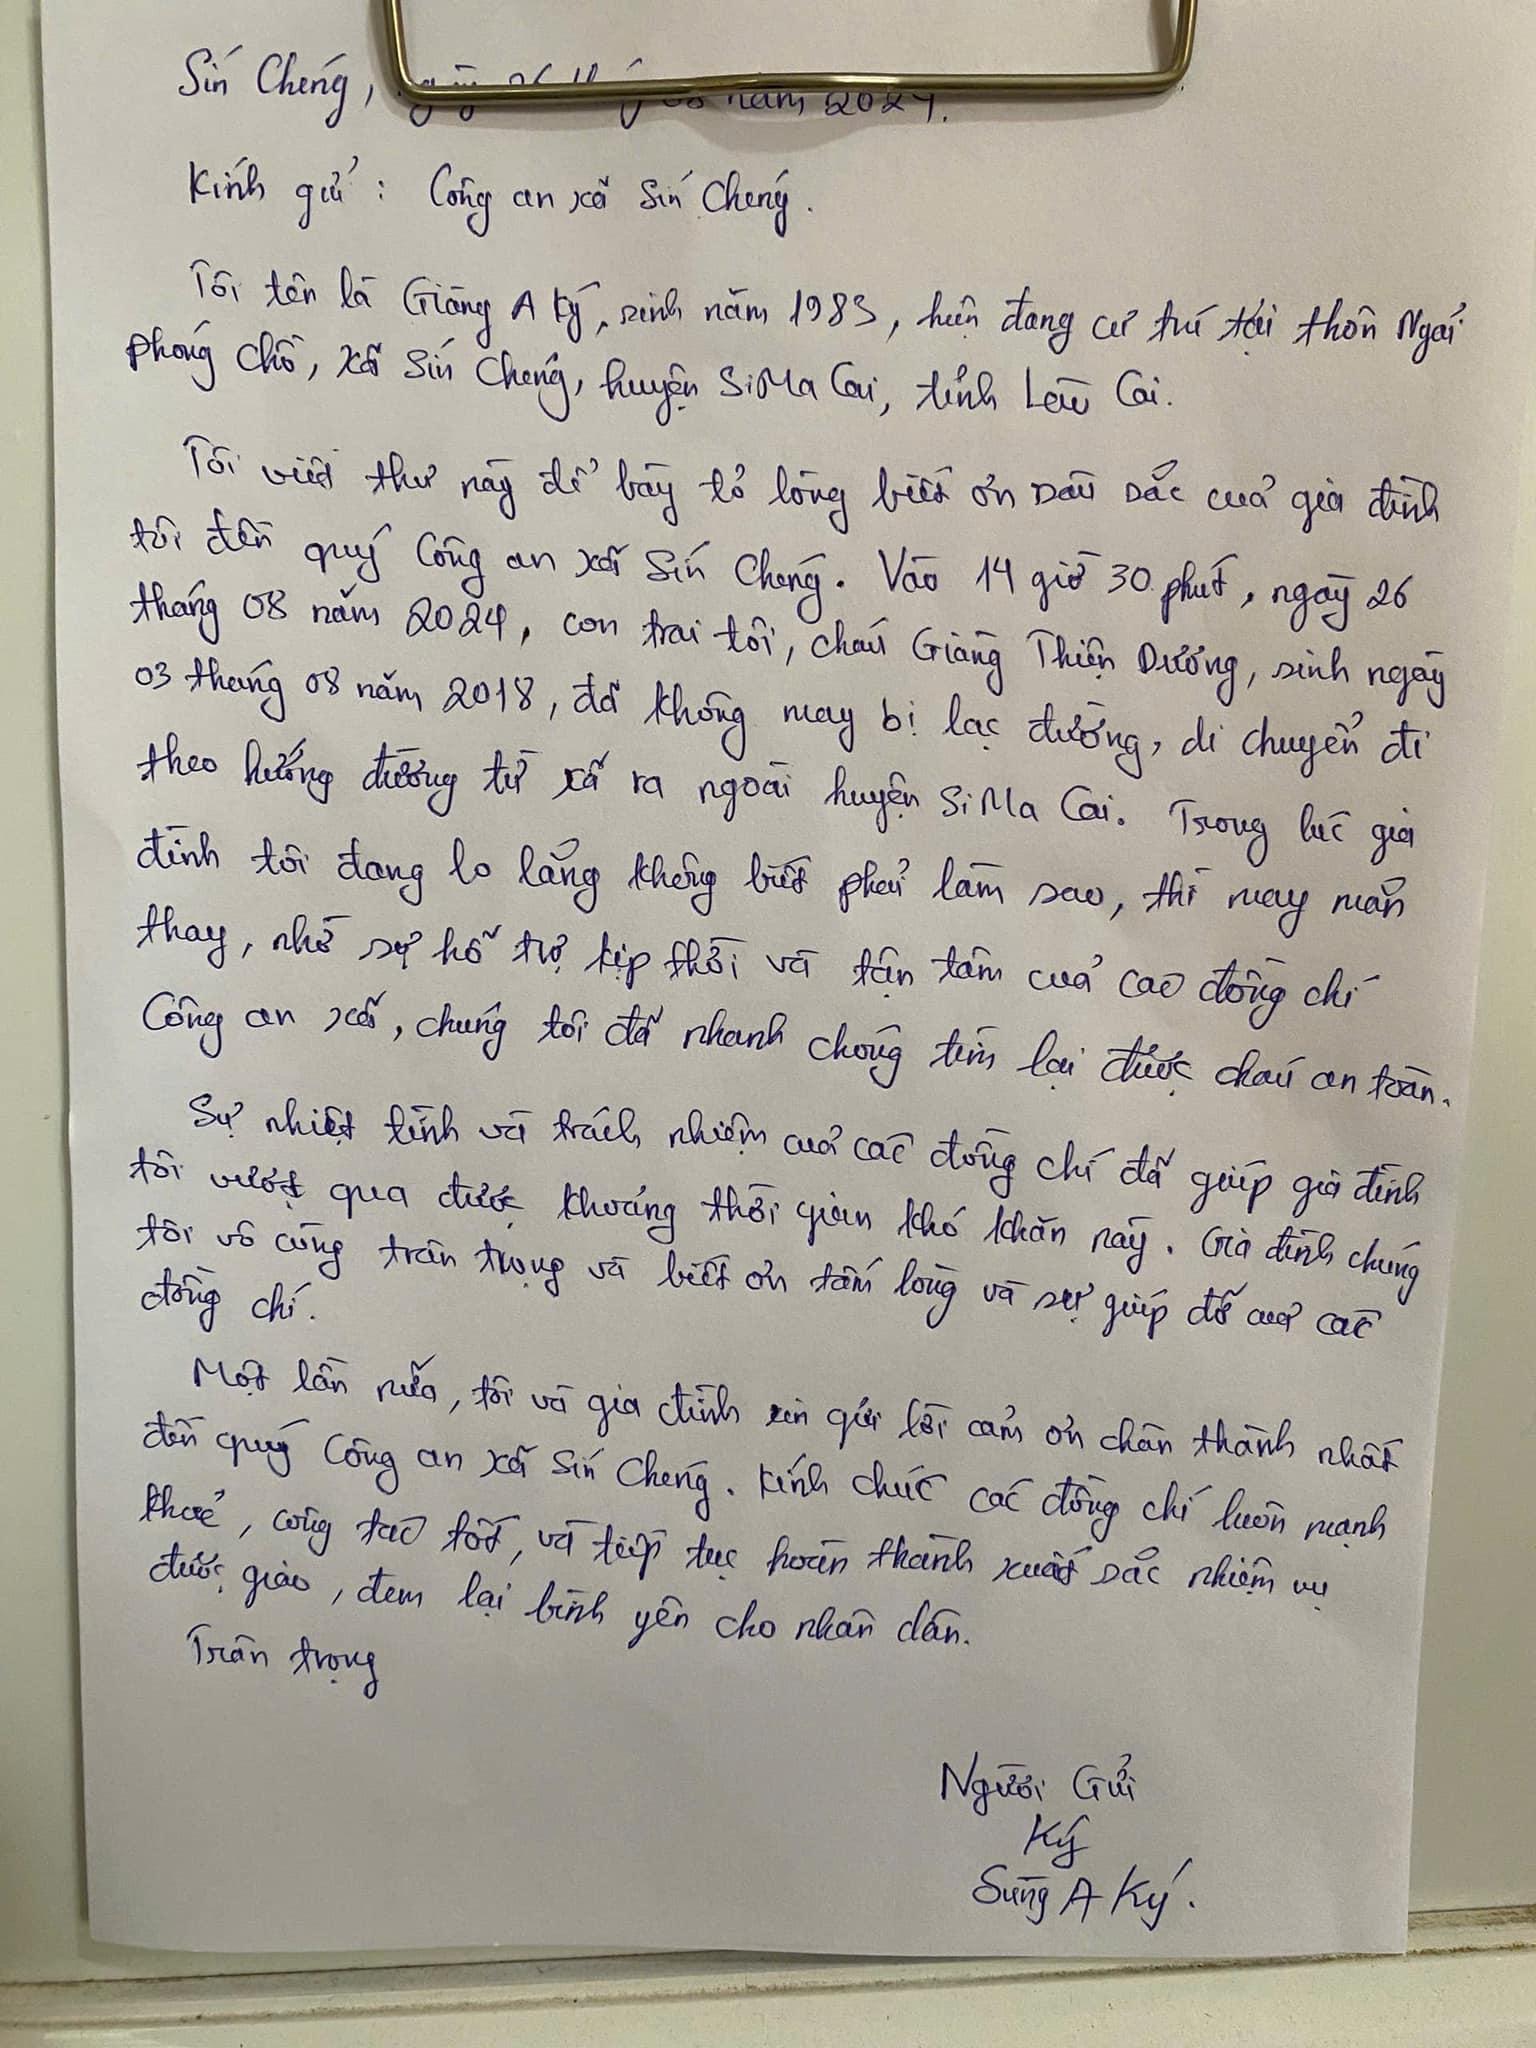 Sín Chéng, ngày 26 tháng 08 năm 2024.
Kính gửi : Công an xã Sín Chéng.
Tôi tên là Giàng A Ký, sinh năm 1983, hiện đang cư trú tại thôn Ngải
Phóng Chồ, xã Sín Chéng, huyện SiMaCai, tỉnh Lào Cai.
Tôi viết thư này để bày tỏ lòng biết ơn sâu sắc của gia đình
tôi đến quý Công an xã Sín Chéng. Vào 14 giờ 30 phút, ngày 26
tháng 08 năm 2024, con trai tôi, cháu Giàng Thiện Dương, sinh ngày
03 tháng 08 năm 2018, đã không may bị lạc đường, di chuyển đi
theo hướng đường từ xã ra ngoài huyện SiMa Cai. Trong lúc gia
đình tôi đang lo lắng không biết phải làm sao, thì may mắn
thay, nhờ sự hỗ trợ kịp thời và tận tâm của cao đồng chí
Công an xã, chúng tôi đã nhanh chóng tìm lại được cháu an toàn.
Sự nhiệt tình và trách nhiệm của các đồng chí đã giúp gia đình
tôi vượt qua được khoảng thời gian khó khăn này. Gia đình chúng
tôi vô cùng trân trọng và biết ơn tấm lòng và sự giúp đỡ của các
đồng chí.
Một lần nữa, tôi và gia đình xin gửi lời cảm ơn chân thành nhất
đến quý Công an xã Sín Chéng. Kính chúc các đồng chí luôn mạnh
khoẻ, công tác tốt, và tiếp tục hoàn thành xuất sắc nhiệm vụ
được giao, đem lại bình yên cho nhân dân.
Trân trọng
Người Gửi
Ký
Sùng A Ký.